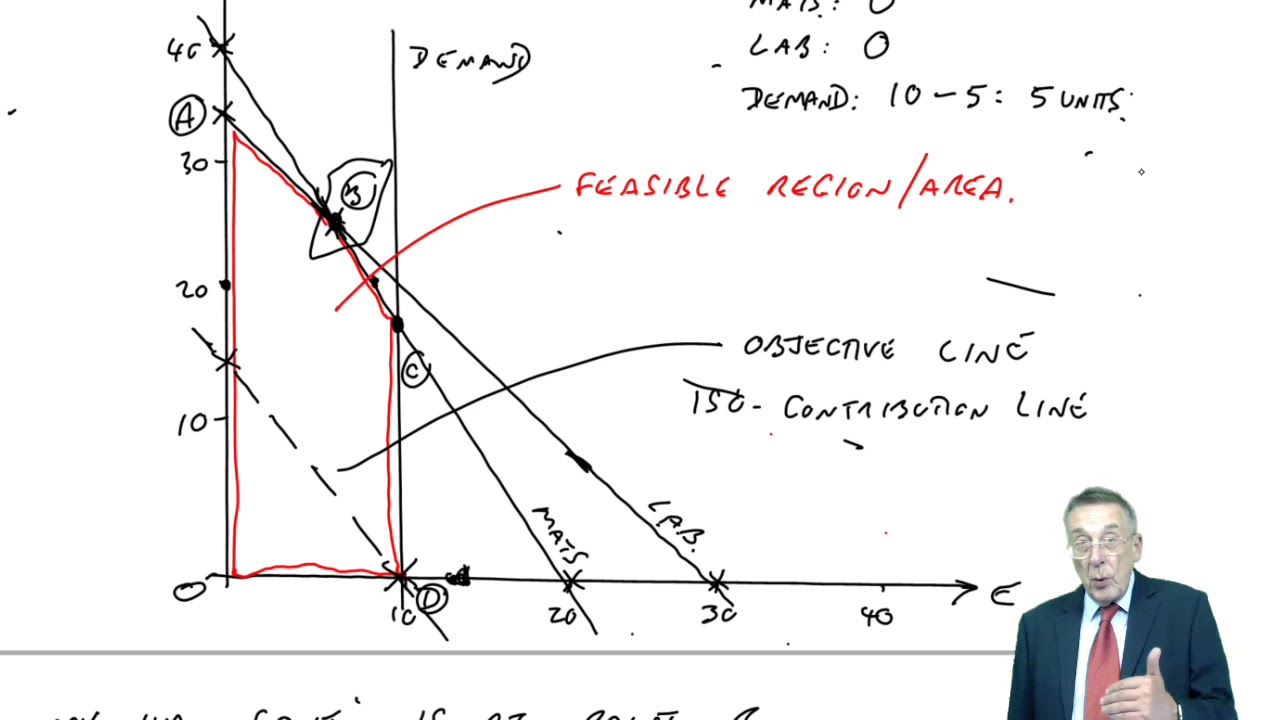 MATS: 0
LAB: 0
DEMAND: 10 - 5 = 5 UNITS
40
DEMAND
A
30
B
FEASIBLE REGION/AREA.
20
OBJECTIVE LINE
C
ISO- CONTRIBUTION LINE
10
MATS
LAB.
0
D
E
10
20
30
40
IS AT POINT B